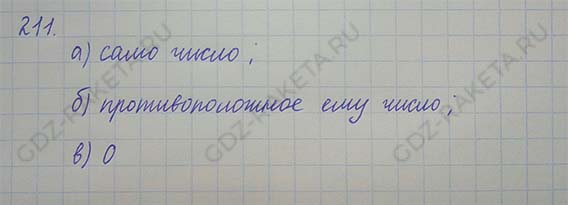 211.
а) само число;
б) противоположное ему число;
в) 0
GDZ-RAKETA.RU
GDZ-RAKETA.RU
GDZ-RAKETA.RU